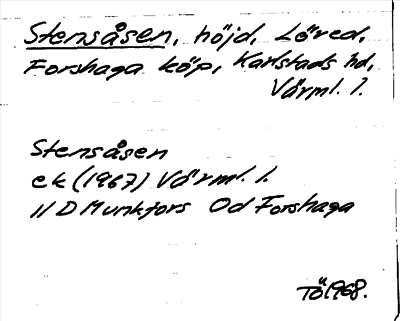 Stensåsen, höjd, Löved,
Forshaga köp, Karlstads hd,
Värml. l.
Stensåsen
ek (1967) Värml. l.
11 D Munkfors Od Forshaga
TÖ 1968.